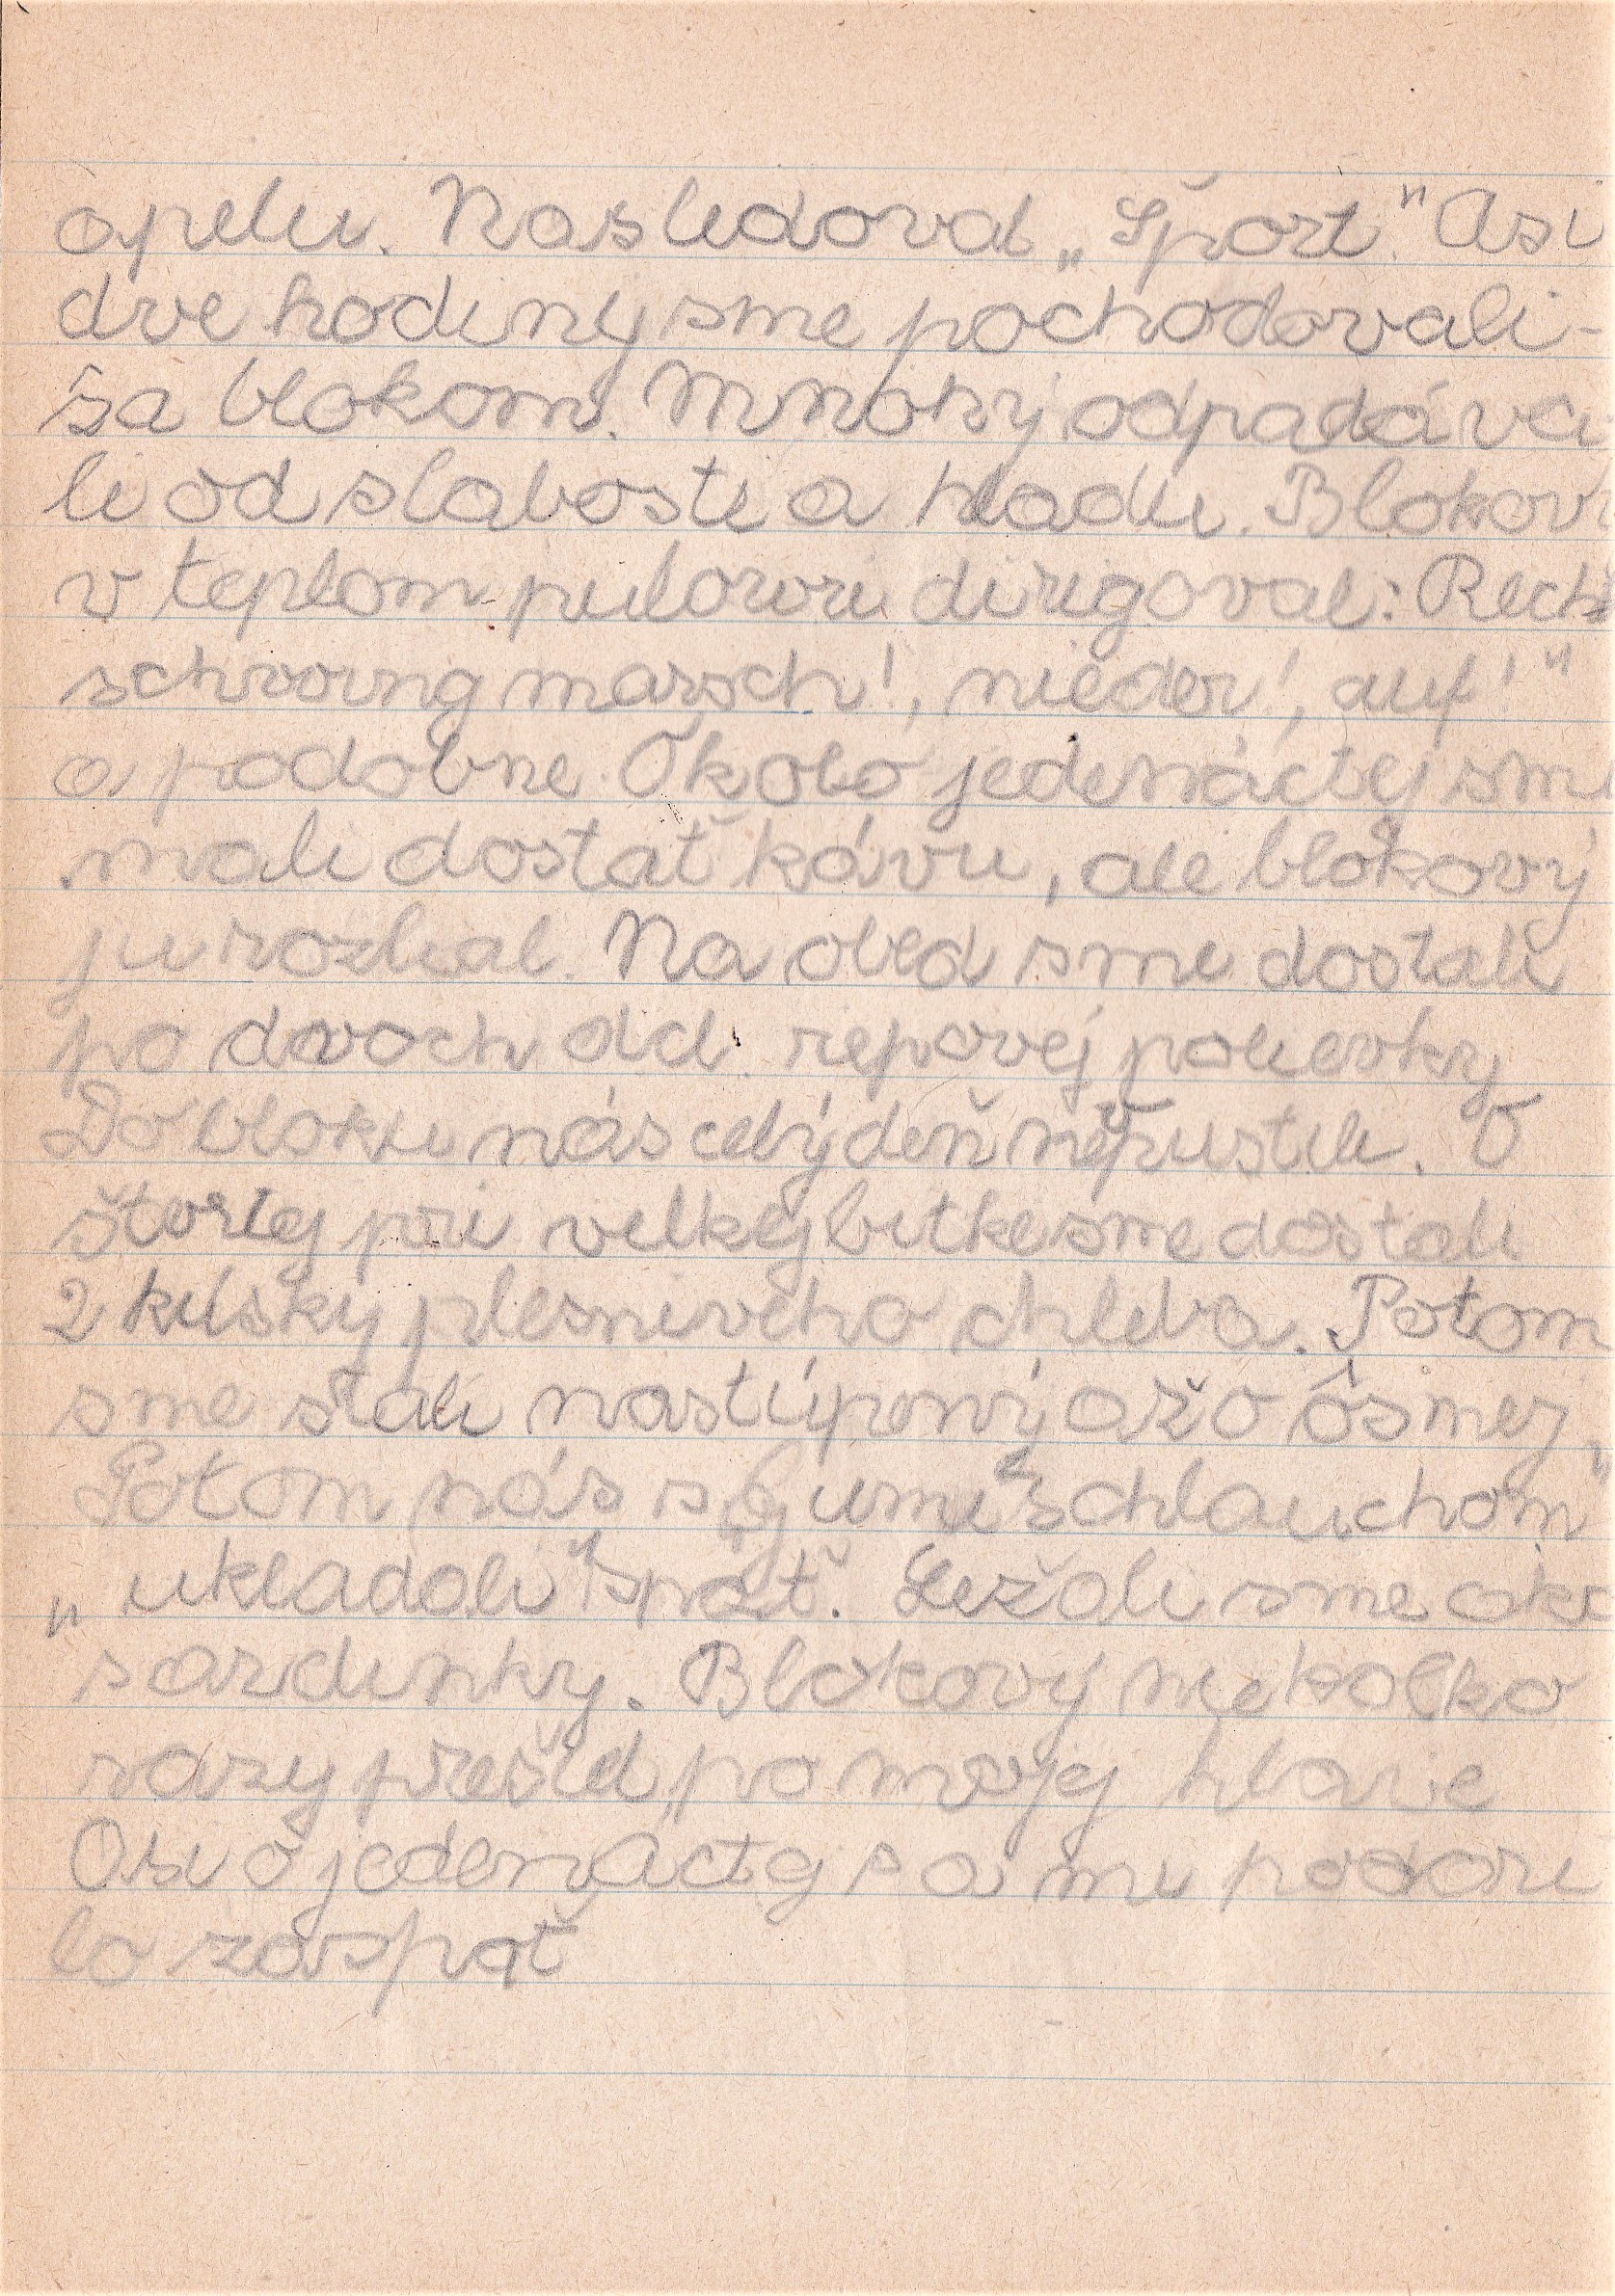 apelu. Nasledoval „Šport." Asi
dve hodiny sme pochodovali-
za blokom. Mnohý odpadáva
li od slabosti a hladu. Blokový
v teplom pulovri dirigoval: Rechts
schwung marsch!, nieder!, auf!"
a podobne. Okolo jedenáctej sme
mali dostať kávu, ale blokový
ju rozlial. Na obed sme dostali
po dvoch dcl. repovej polievky
Do bloku nás celý deň nepustili. O
štvrtej pri velkej bitke sme dostali
2 kúsky plesnivého chleba. Potom
sme stáli nastúpený až o ôsmej
Potom nás s gumi „schlauchom"
„ukladali" spať. Ležali sme ako
sardinky. Blokový niekoľko
razy prešiel po mojej hlave
Asi o jedenáctej sa mi podari
lo zaspať